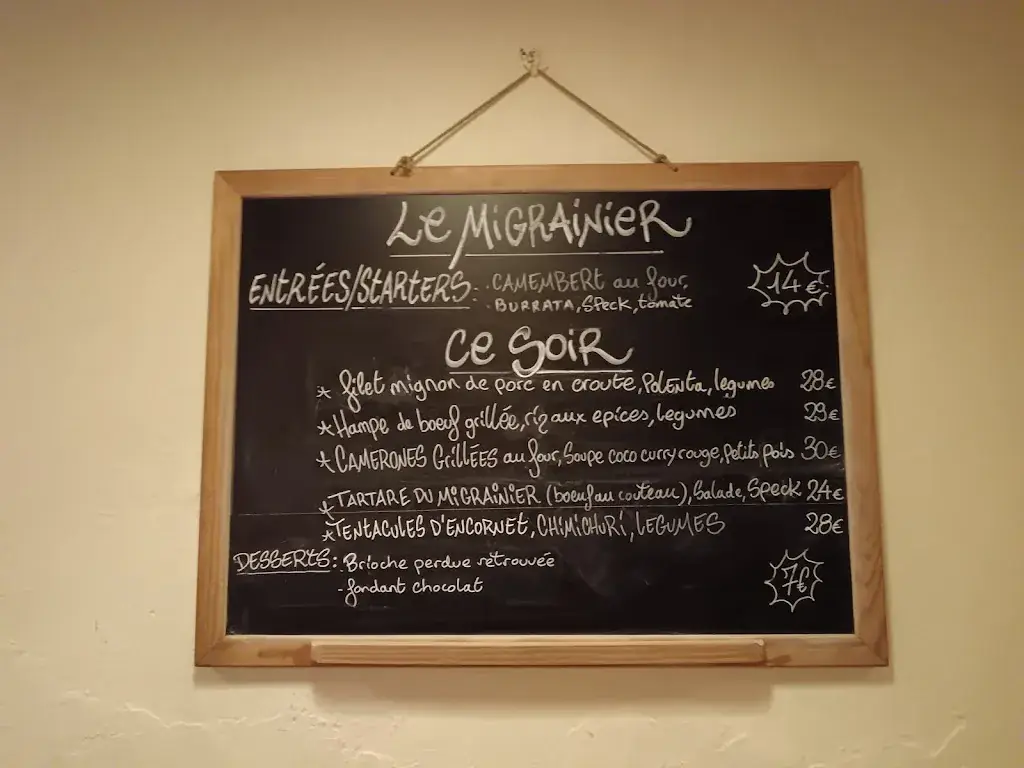 Le MiGRAiNieR
ENTRÉES/StARTERS: . CAMEMBERt au four, 14€
. BURRATA, Speck, tomate
Ce Soir
* filet mignon de porc en croute, Polenta, legumes 28€
* Hampe de boeuf grillée, riz aux epices, legumes 29€
* CAMERONES GriLLÉES au four, Soupe coco curry rouge, Petits pois 30€
* TARTARE DU MiGRAiNiER (boeuf au couteau), Salade, Speck 24€
* TENTACULES D'ENCORNET, CHiMiCHURí, LEGUMES 28€
DESSERTS: - Brioche perdue retrouvée 7€
- fondant chocolat